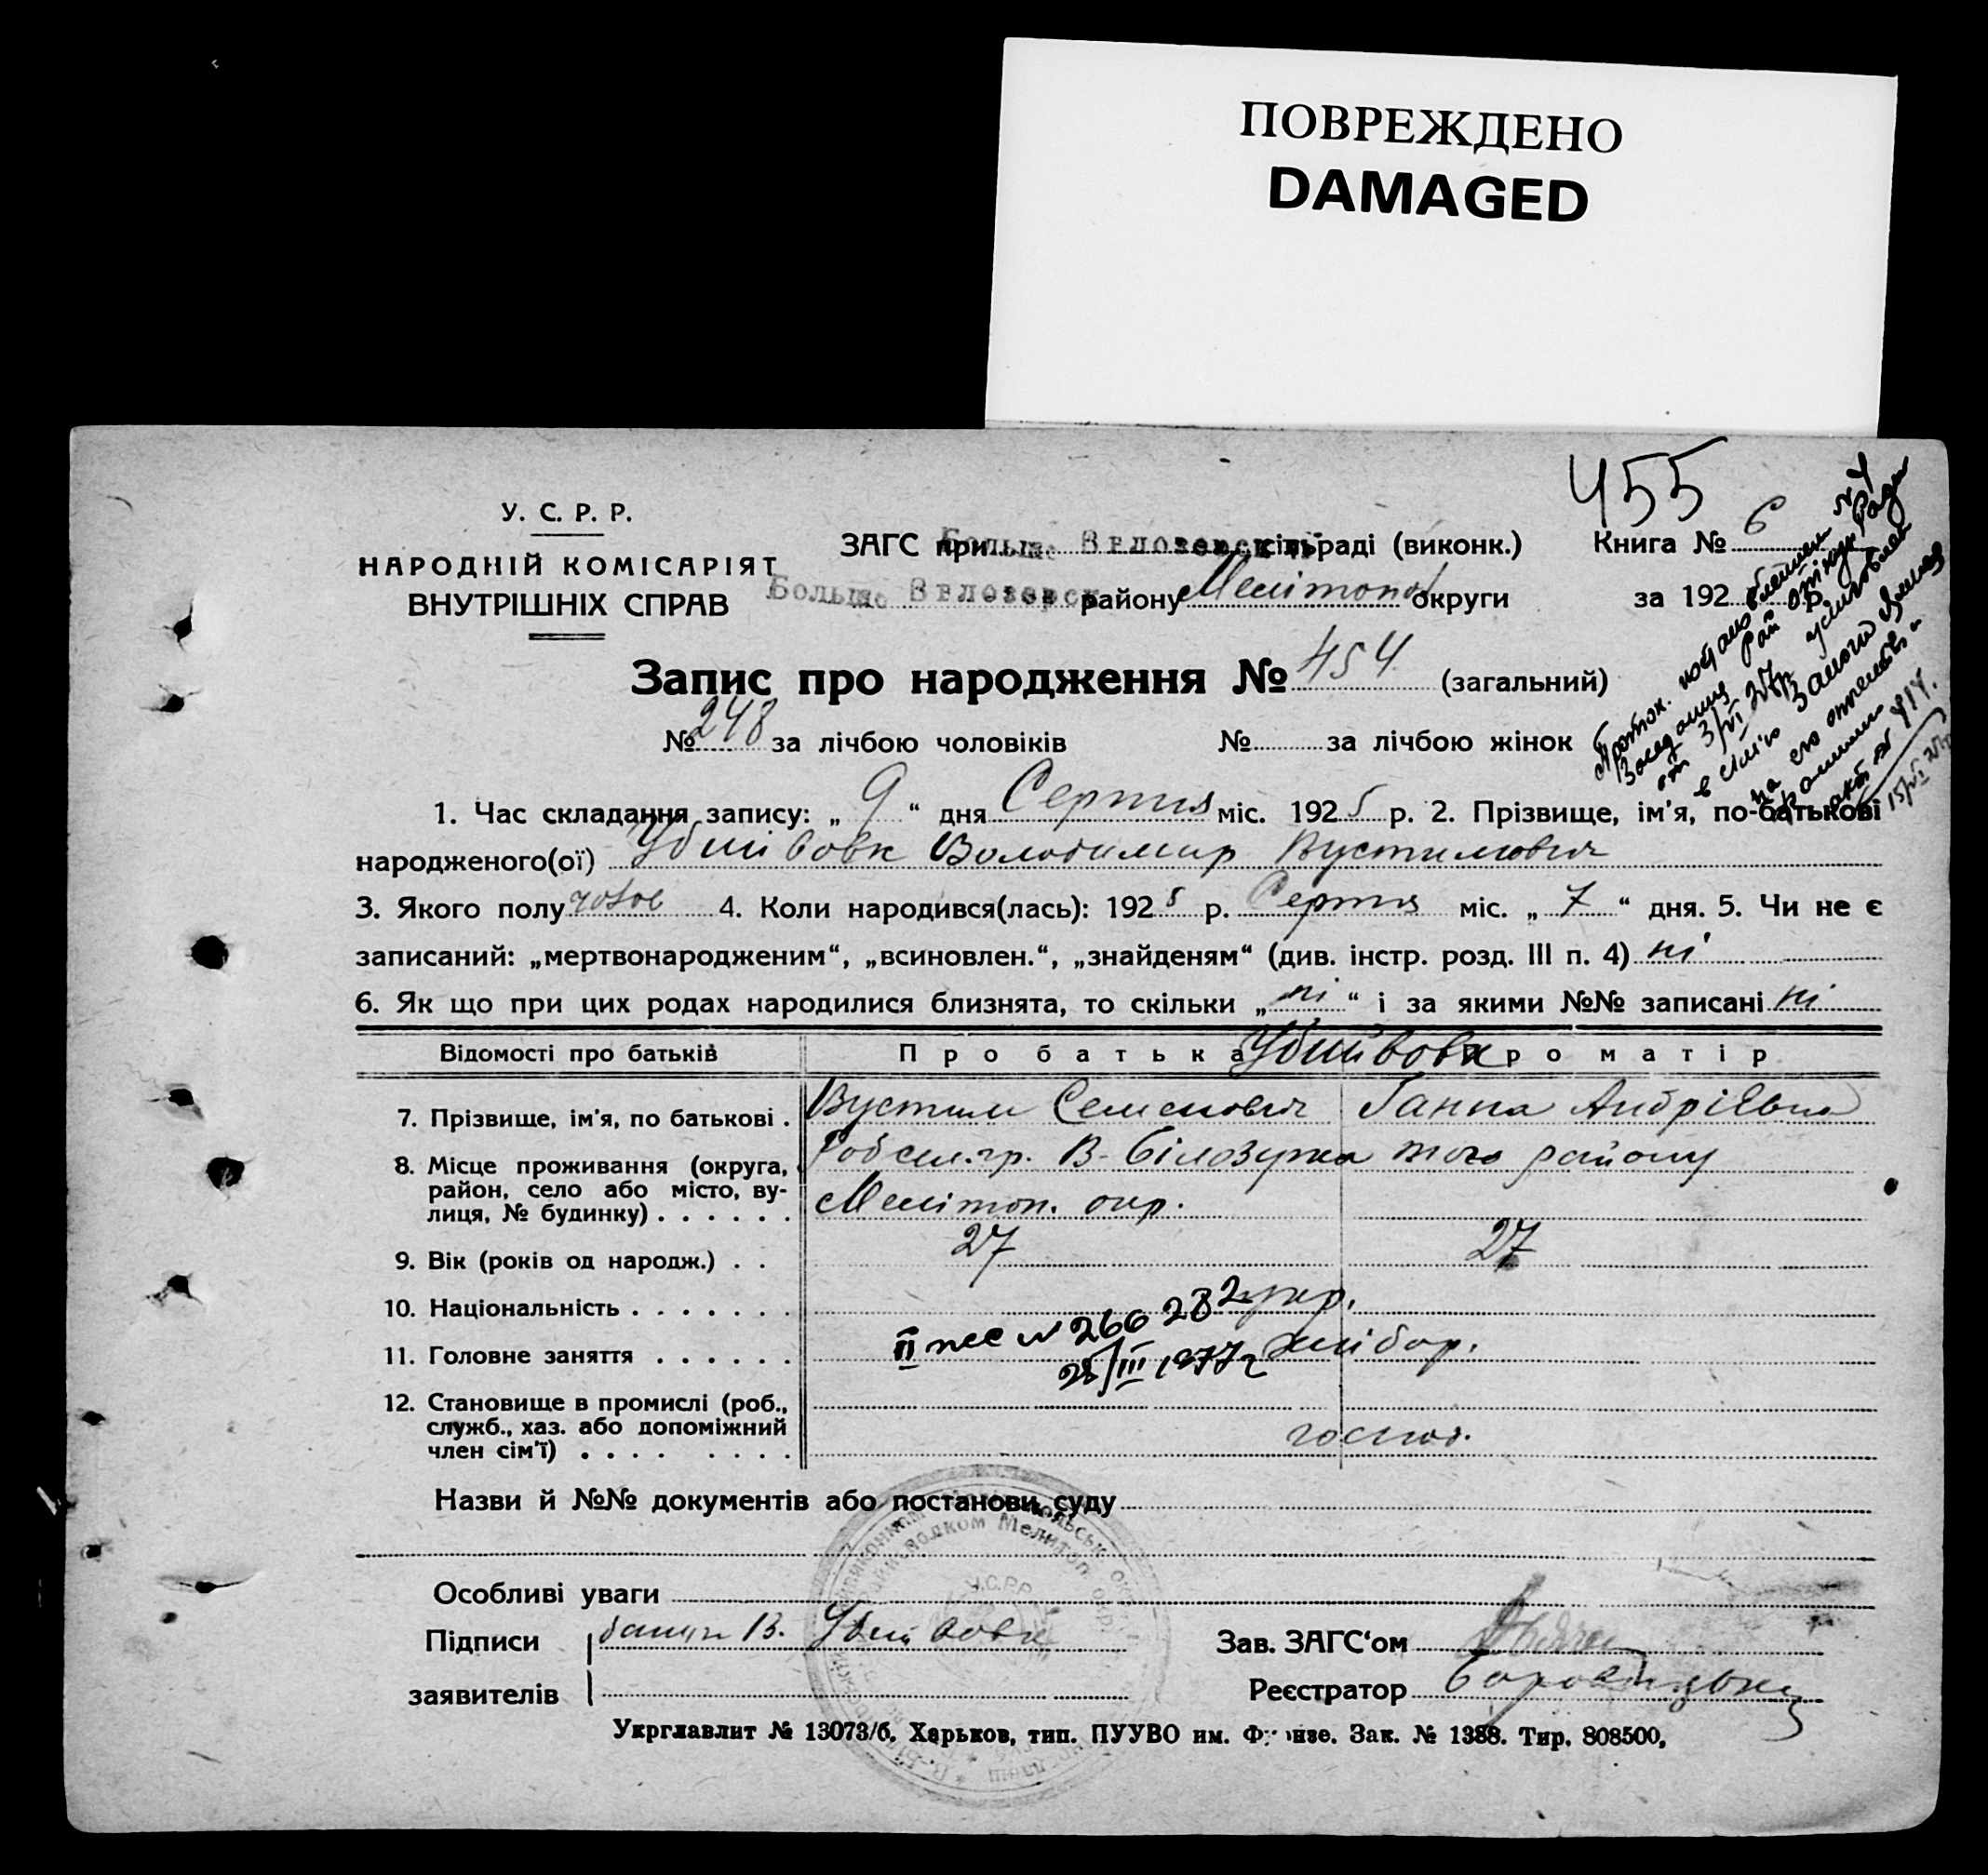 ПОВРЕЖДЕНО
DAMAGED
455
У. С. Р. Р.
НАРОДНІЙ КОМІСАРІЯТ
ВНУТРІШНІХ СПРАВ
ЗАГС при Больше Белозерск. сільраді (виконк.)
Больше Белозерск района Мелітопол округи
Книга № 6
за 192
Запис про народження № 454 (загальний)
№ 248 за лічбою чоловіків № за лічбою жінок
1. Час складання запису: „ 9 “ дня Серпня міс. 1925 р. 2. Прізвище, ім'я, по-батькові
народженого(ої) Убийвовк Володимир Вустимович
3. Якого полу чолов 4. Коли народився(лась): 1925 р. Серпня міс. „ 7 “ дня. 5. Чи не є
записаний: „мертвонародженим“, „всиновлен.“, „знайденям“ (див. інстр. розд. III п. 4) ні
6. Як що при цих родах народилися близнята, то скільки „ ні “ і за якими №№ записані ні
Відомості про батьків Про батька Убийвовк Про матір
7. Прізвище, ім'я, по батькові . Вустим Семенович Ганна Андріївна
8. Місце проживання (округа, район, село або місто, вулиця, № будинку) . . . . . . В-Білозурка того району
Мелітоп. окр.
9. Вік (років од народж.) . . 27 27
10. Національність . . . . . . . укр.
II № 266282
25/III 1977 г
11. Головне заняття . . . . . . хлібор.
12. Становище в промислі (роб., служб., хаз. або допоміжний член сім'ї) . . . . . . . . господ.
Назви й №№ документів або постанови суду
Особливі уваги
Підписи батьк В. Убийвовк
заявителів
Зав. ЗАГС'ом
Реєстратор
Укрглавлит № 13073/б. Харьков, тип. ПУУВО им. Фрунзе. Зак. № 1388. Тир. 808500,